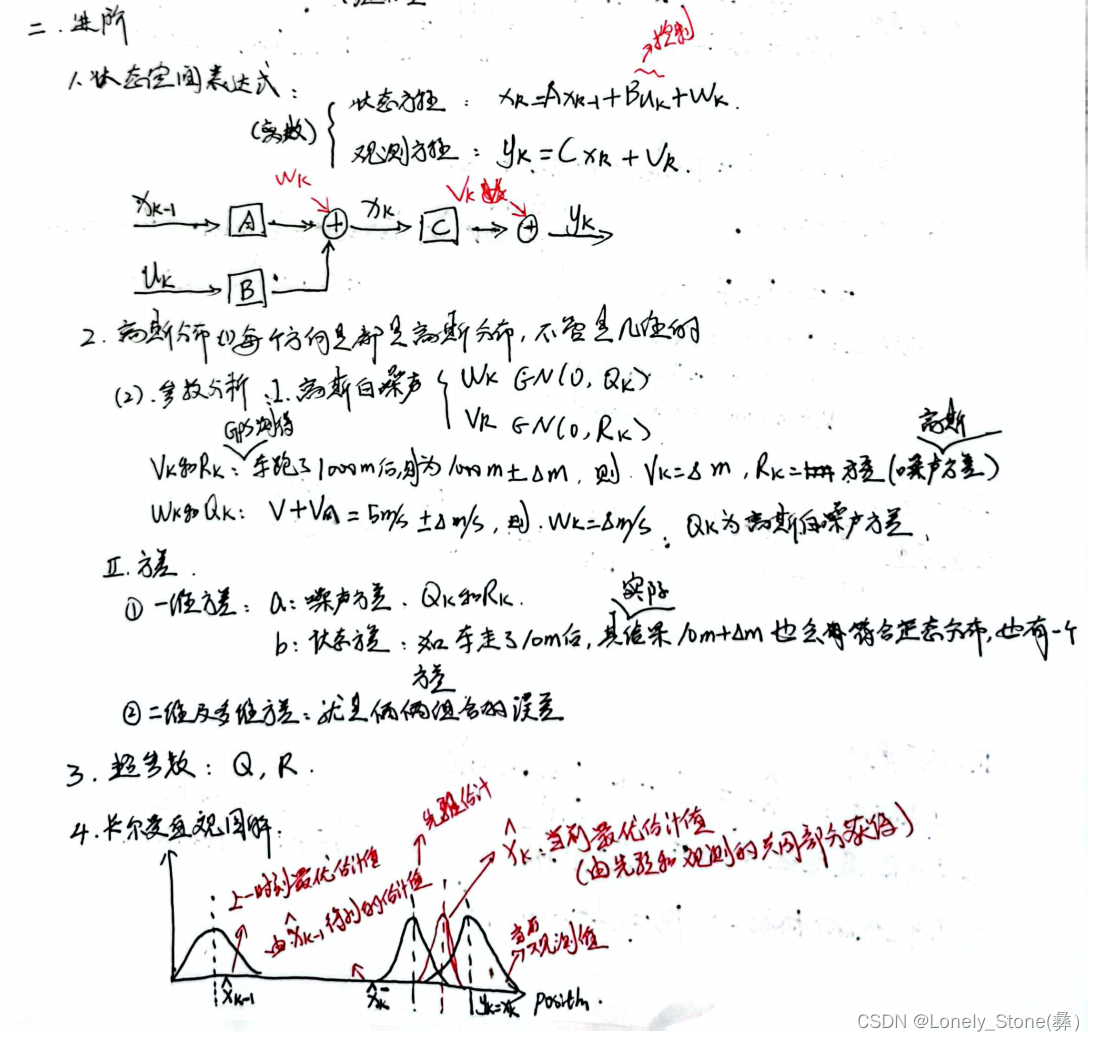 二.进阶
→控制
1.状态空间表达式：
(离散)
状态方程：xk=Axk-1+Buk+Wk.
观测方程：yk=Cxk+Vk.
Wk
Vk
xk-1 A + xk C + yk
uk B
2.高斯分布 每个方向是都是高斯分布，不管是几维的
(2).参数分析：I.高斯白噪声
Wk∈N(0,Qk)
Vk∈N(0,Rk)
GPS测得
高斯
Vk和Rk：车跑了1000m后，为1000m±Δm，则.Vk=Δm，Rk=方差(噪声方差)
Wk和Qk：V+V=5m/s±Δm/s，则.Wk=Δm/s. Qk为高斯白噪声方差.
II.方差.
①一维方差：a：噪声方差.Qk和Rk.
实际
b：状态方差：如车走了10m后，其结果10m+Δm也会符合正态分布，也有一个
方差
②二维及多维方差：就是俩俩组合的误差
3.超参数：Q，R.
4.卡尔曼直观图解.
先验估计
上一时刻最优估计值
由x̂k-1得到的估计值
x̂k：当前最优估计值
(由先验和观测的共同部分获得)
当前
观测值
x̂k-1
x̂k⁻
yk=xk
position.
CSDN @Lonely_Stone(彝)